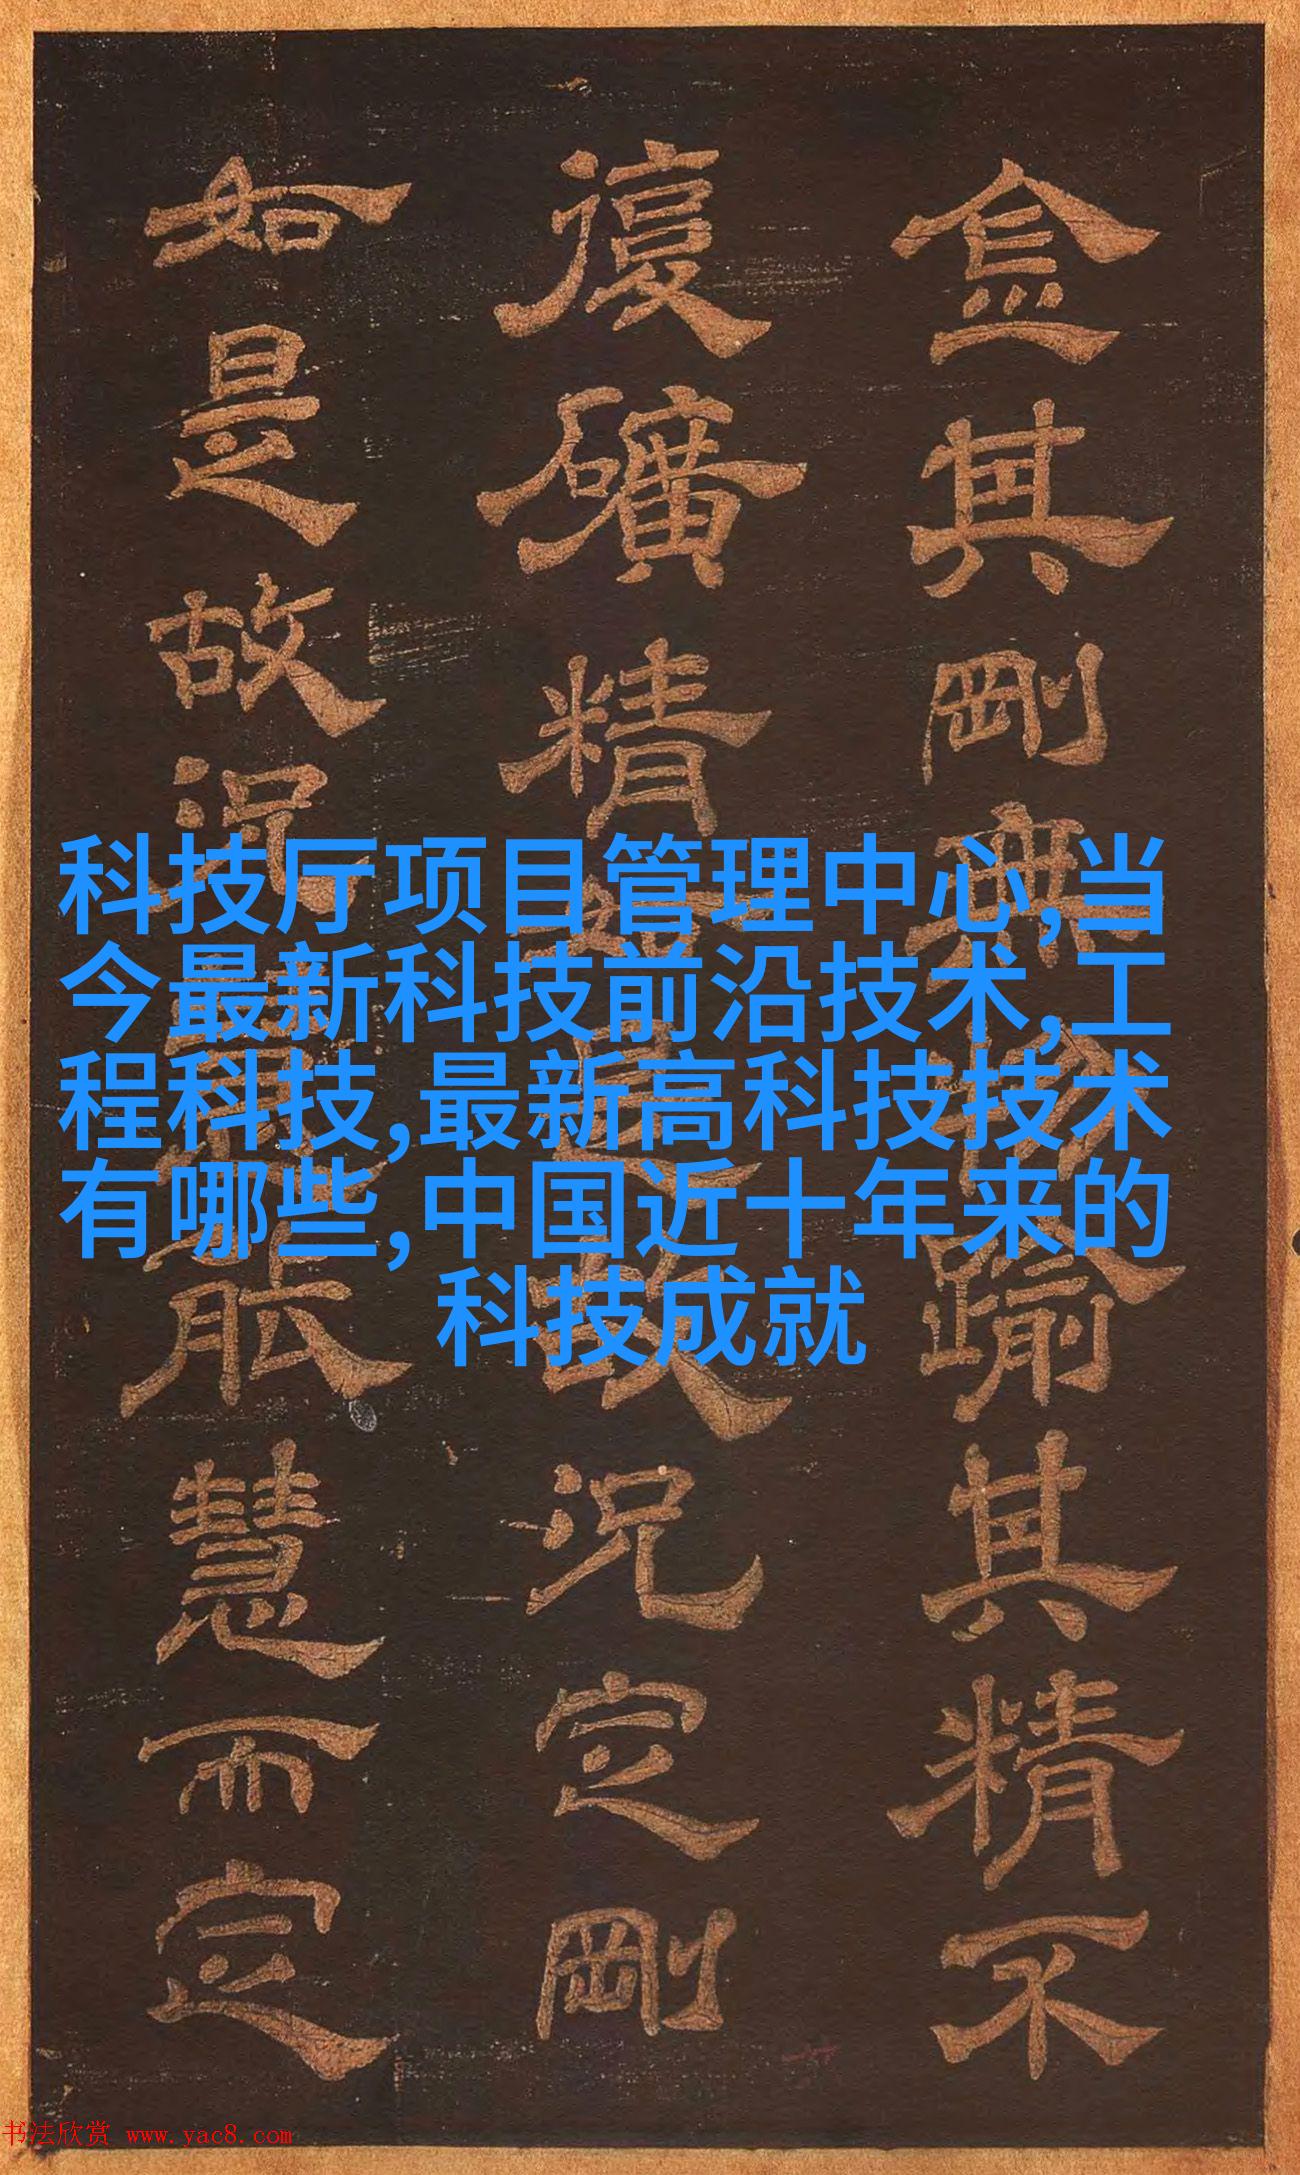 科技厅项目管理中心,当
今最新科技前沿技术,工
程科技,最新高科技技术
有哪些,中国近十年来的
科技成就
其剛無物踰其精不
復礦精是故況定剛
如是故況慧而定
书法欣赏 www.yac8.com